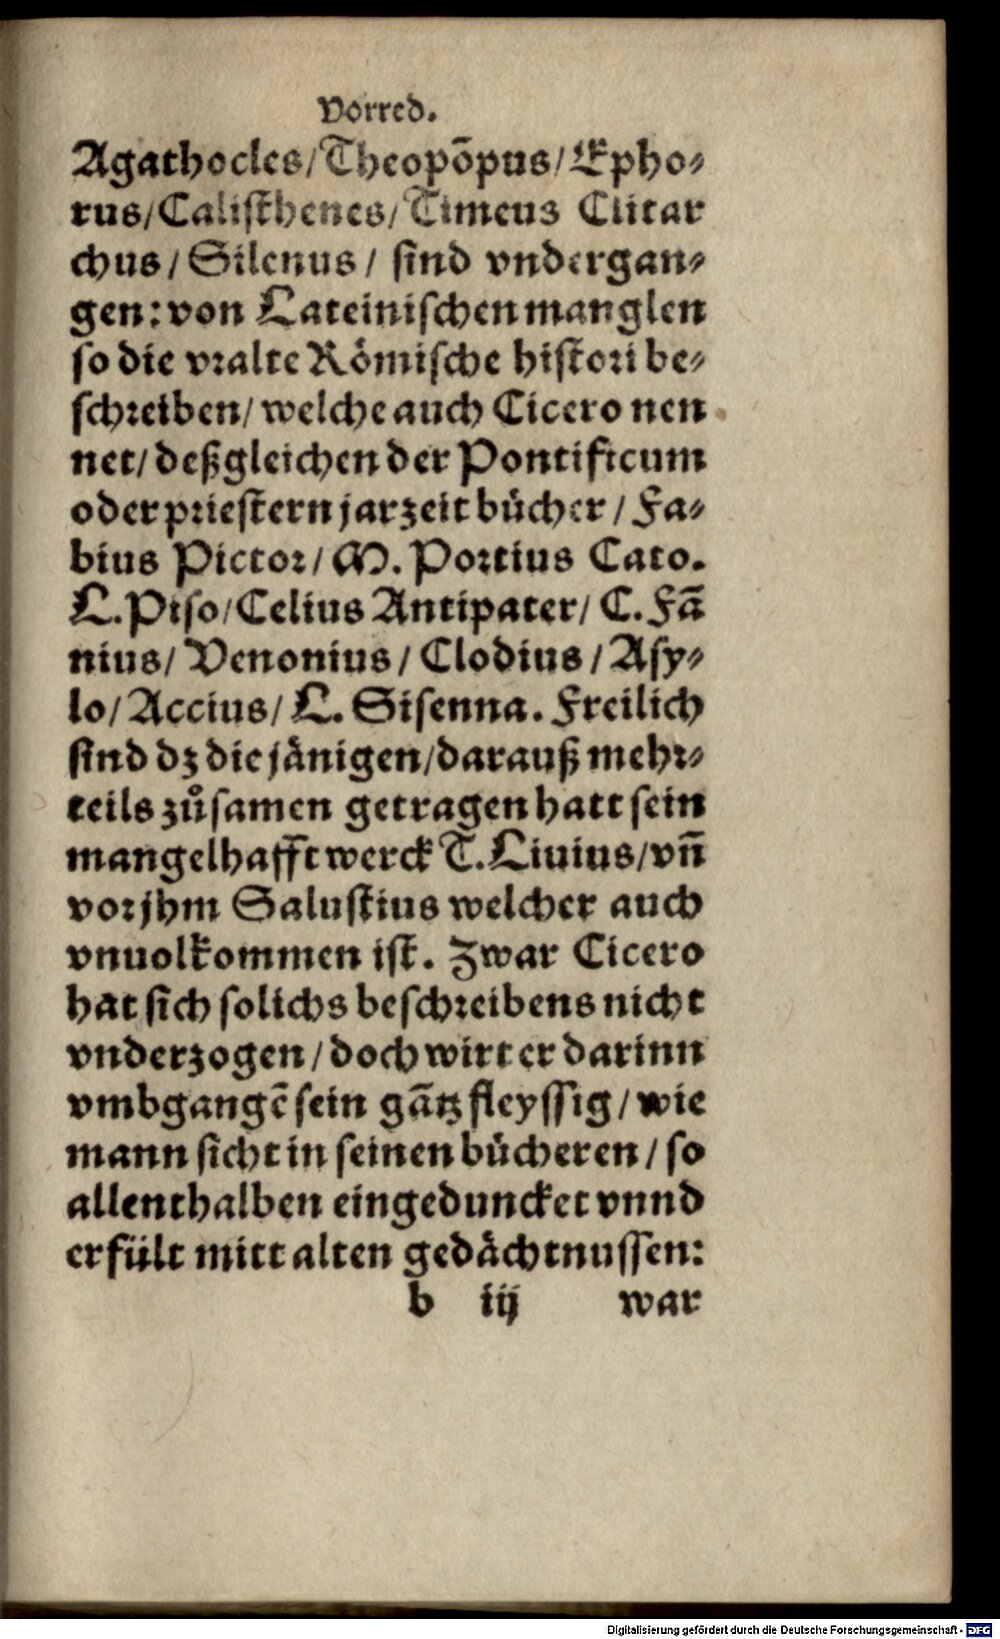 Vorred.
Agathocles/Theopõpus/Epho⸗
rus/Calisthenes/Timeus Clitar
chus/Silenus/ sind vndergan⸗
gen:von Lateinischen manglen
so die vralte Römische histori be⸗
schreiben/welche auch Cicero nen
net/deßgleichen der Pontificum
oder priestern jarzeit bůcher/Fa⸗
bius Pictor/M. Portius Cato.
L.Piso/Celius Antipater/C.Fã
nius/Venonius/Clodius/Asy⸗
lo/Accius/L. Sisenna. Freilich
sind dz die jänigen/darauß mehr⸗
teils zůsamen getragen hatt sein
mangelhafft werck T.Liuius/vñ
vor jhm Salustius welcher auch
vnuolkommen ist. Zwar Cicero
hat sich solichs beschreibens nicht
vnderzogen/doch wirt er darinn
vmbgangẽ sein gãtz fleyssig/wie
mann sicht in seinen bůcheren/so
allenthalben eingeduncket vnnd
erfült mitt alten gedächtnussen:
b iij war
Digitalisierung gefördert durch die Deutsche Forschungsgemeinschaft - DFG